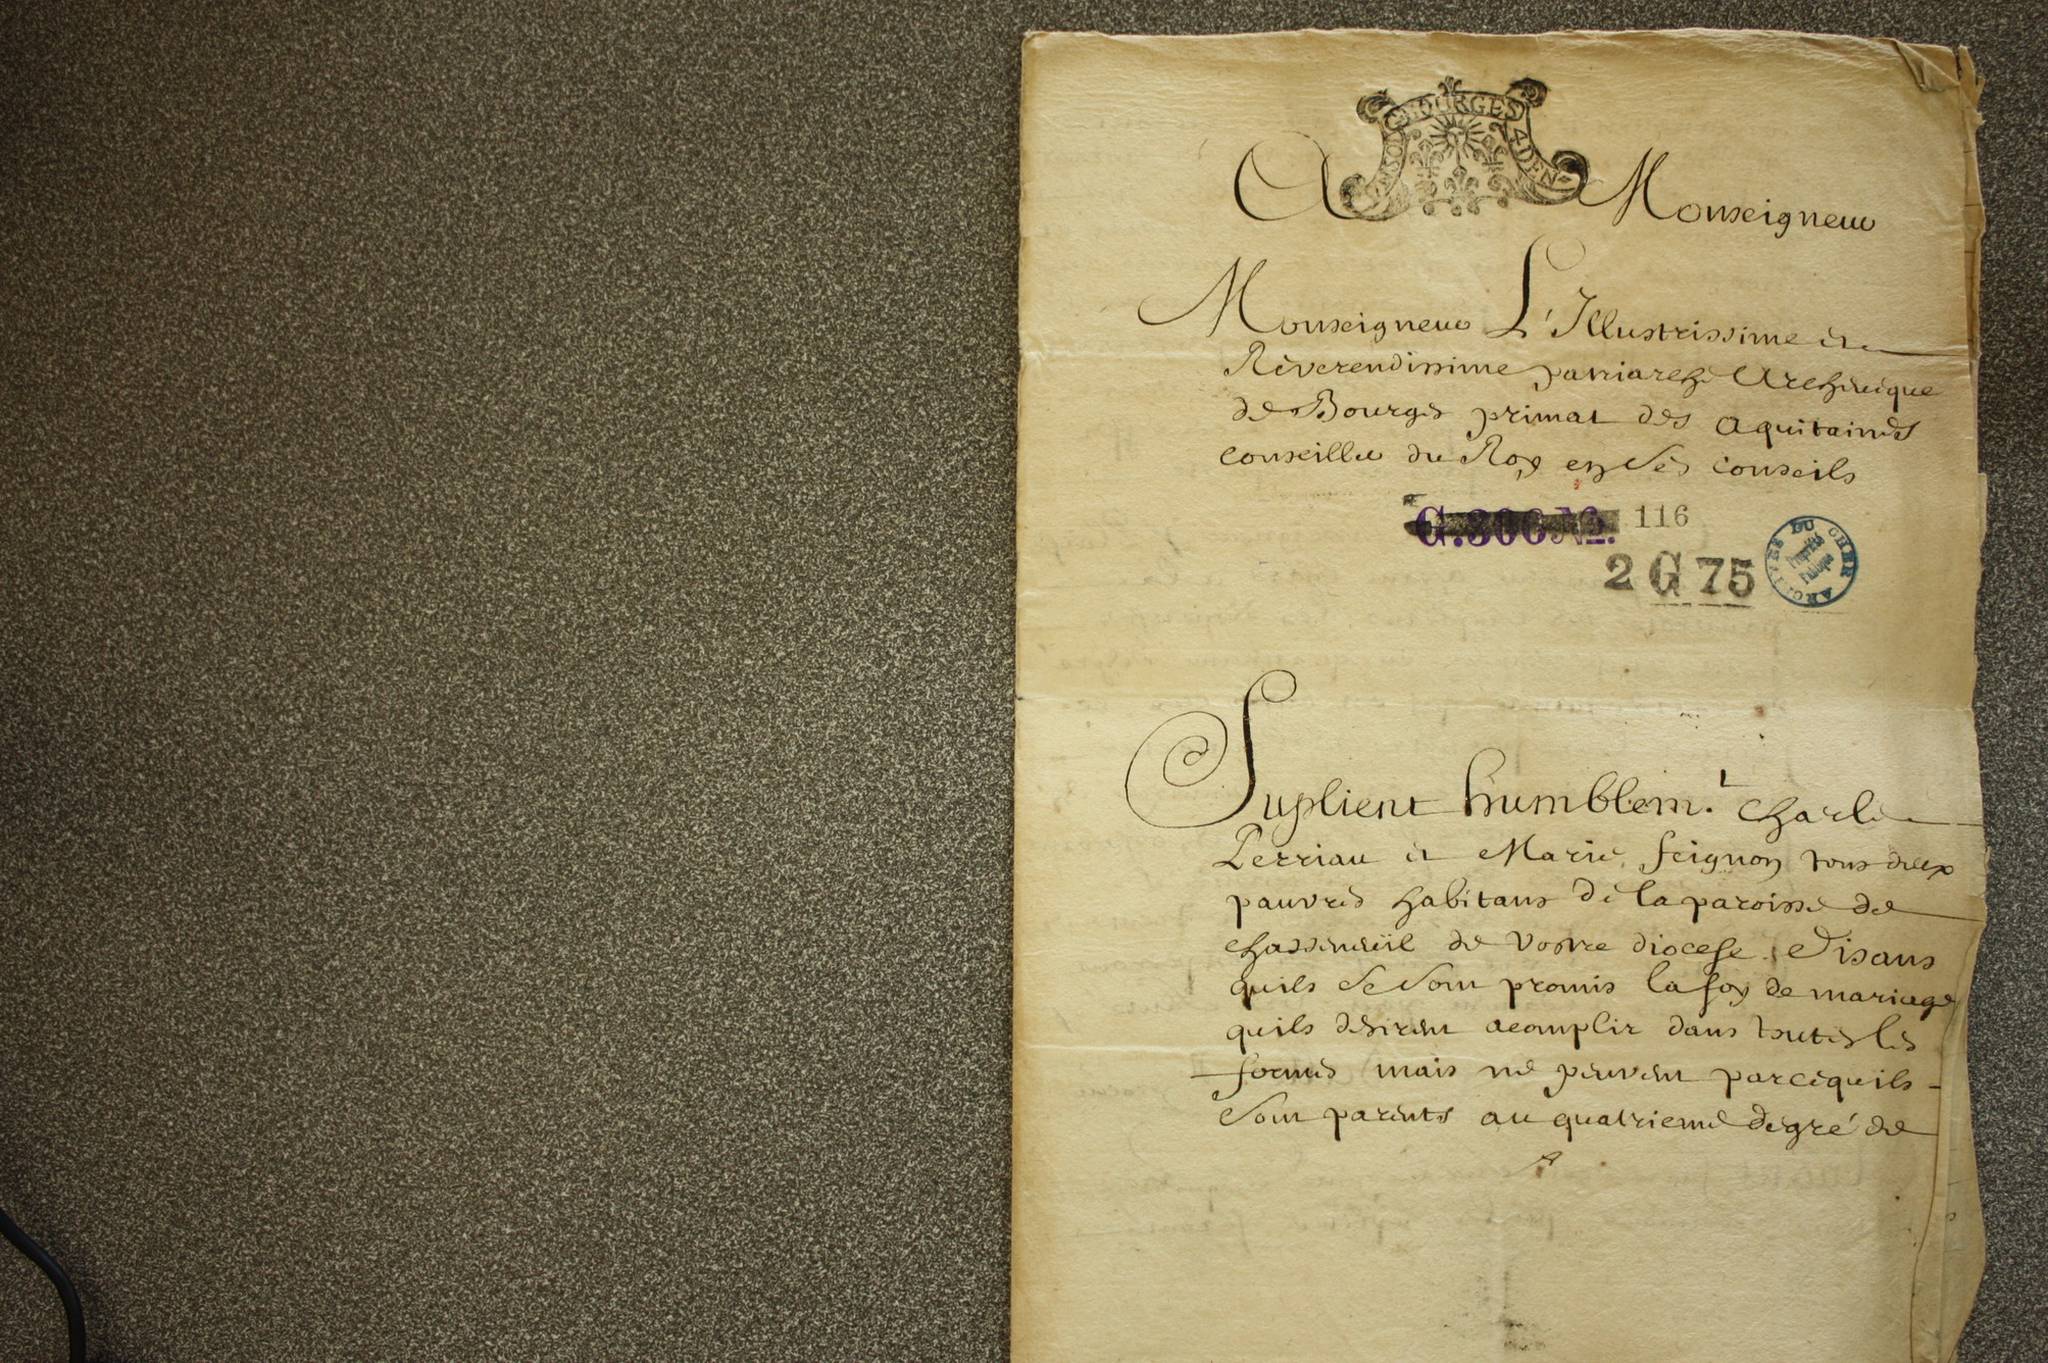 BOURGES
4 DEN
A Monseigneur
Monseigneur L'Illustrissime et
Réverendissime patriarche Archevéque
de Bourges primat des aquitaines
conseiller du Roy en ses conseils
G.306 No. 116
2 G 75
ARCHIVES DU CHER
Propriété
Publique
Suplient humblem.t Charles
Perriau et Marie feignon tous deux
pauvres habitans de la paroisse de
chasseneüil de vostre diocese. Disans
quils se sont promis la foy de mariage
quils desirent acomplir dans toutes les
formes mais ne peuvent parcequils -
sont parents au quatrieme degré de
A